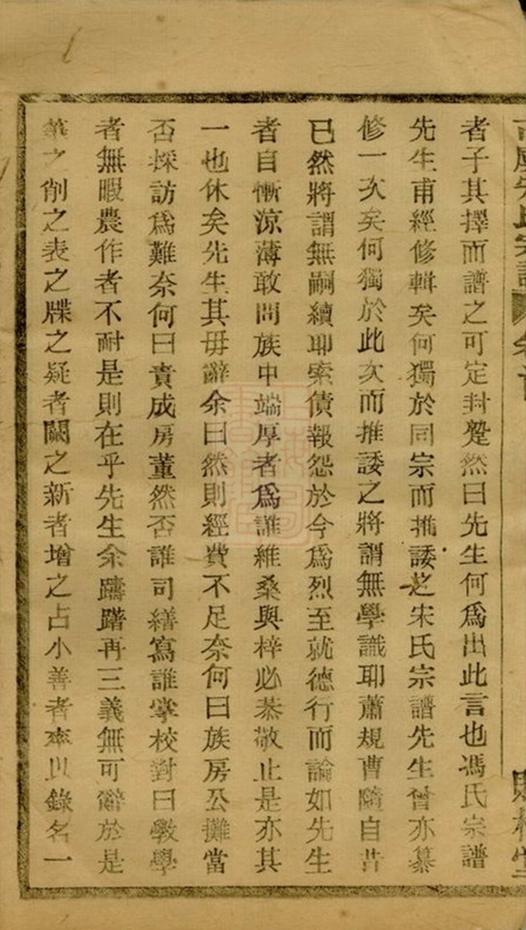 者子其擇而譜之可定封蹵然曰先生何爲出此言也馮氏宗譜
先生甫經修輯矣何獨於同宗而推諉之宋氏宗譜先生曾亦纂
修一次矣何獨於此次而推諉之將謂無學識耶蕭規曹隨自昔
已然將謂無嗣續耶索債報怨於今爲烈至就德行而論如先生
者自慚涼薄敢問族中端厚者爲誰維桑與梓必恭敬止是亦其
一也休矣先生其毋辭余曰然則經費不足奈何曰族房公攤當
否採訪爲難奈何曰責成房董然否誰司繕寫誰掌校對曰敎學
者無暇農作者不耐是則在乎先生余躊躇再三義無可辭於是
筆之削之表之牒之疑者闕之新者增之占小善者率以錄名一